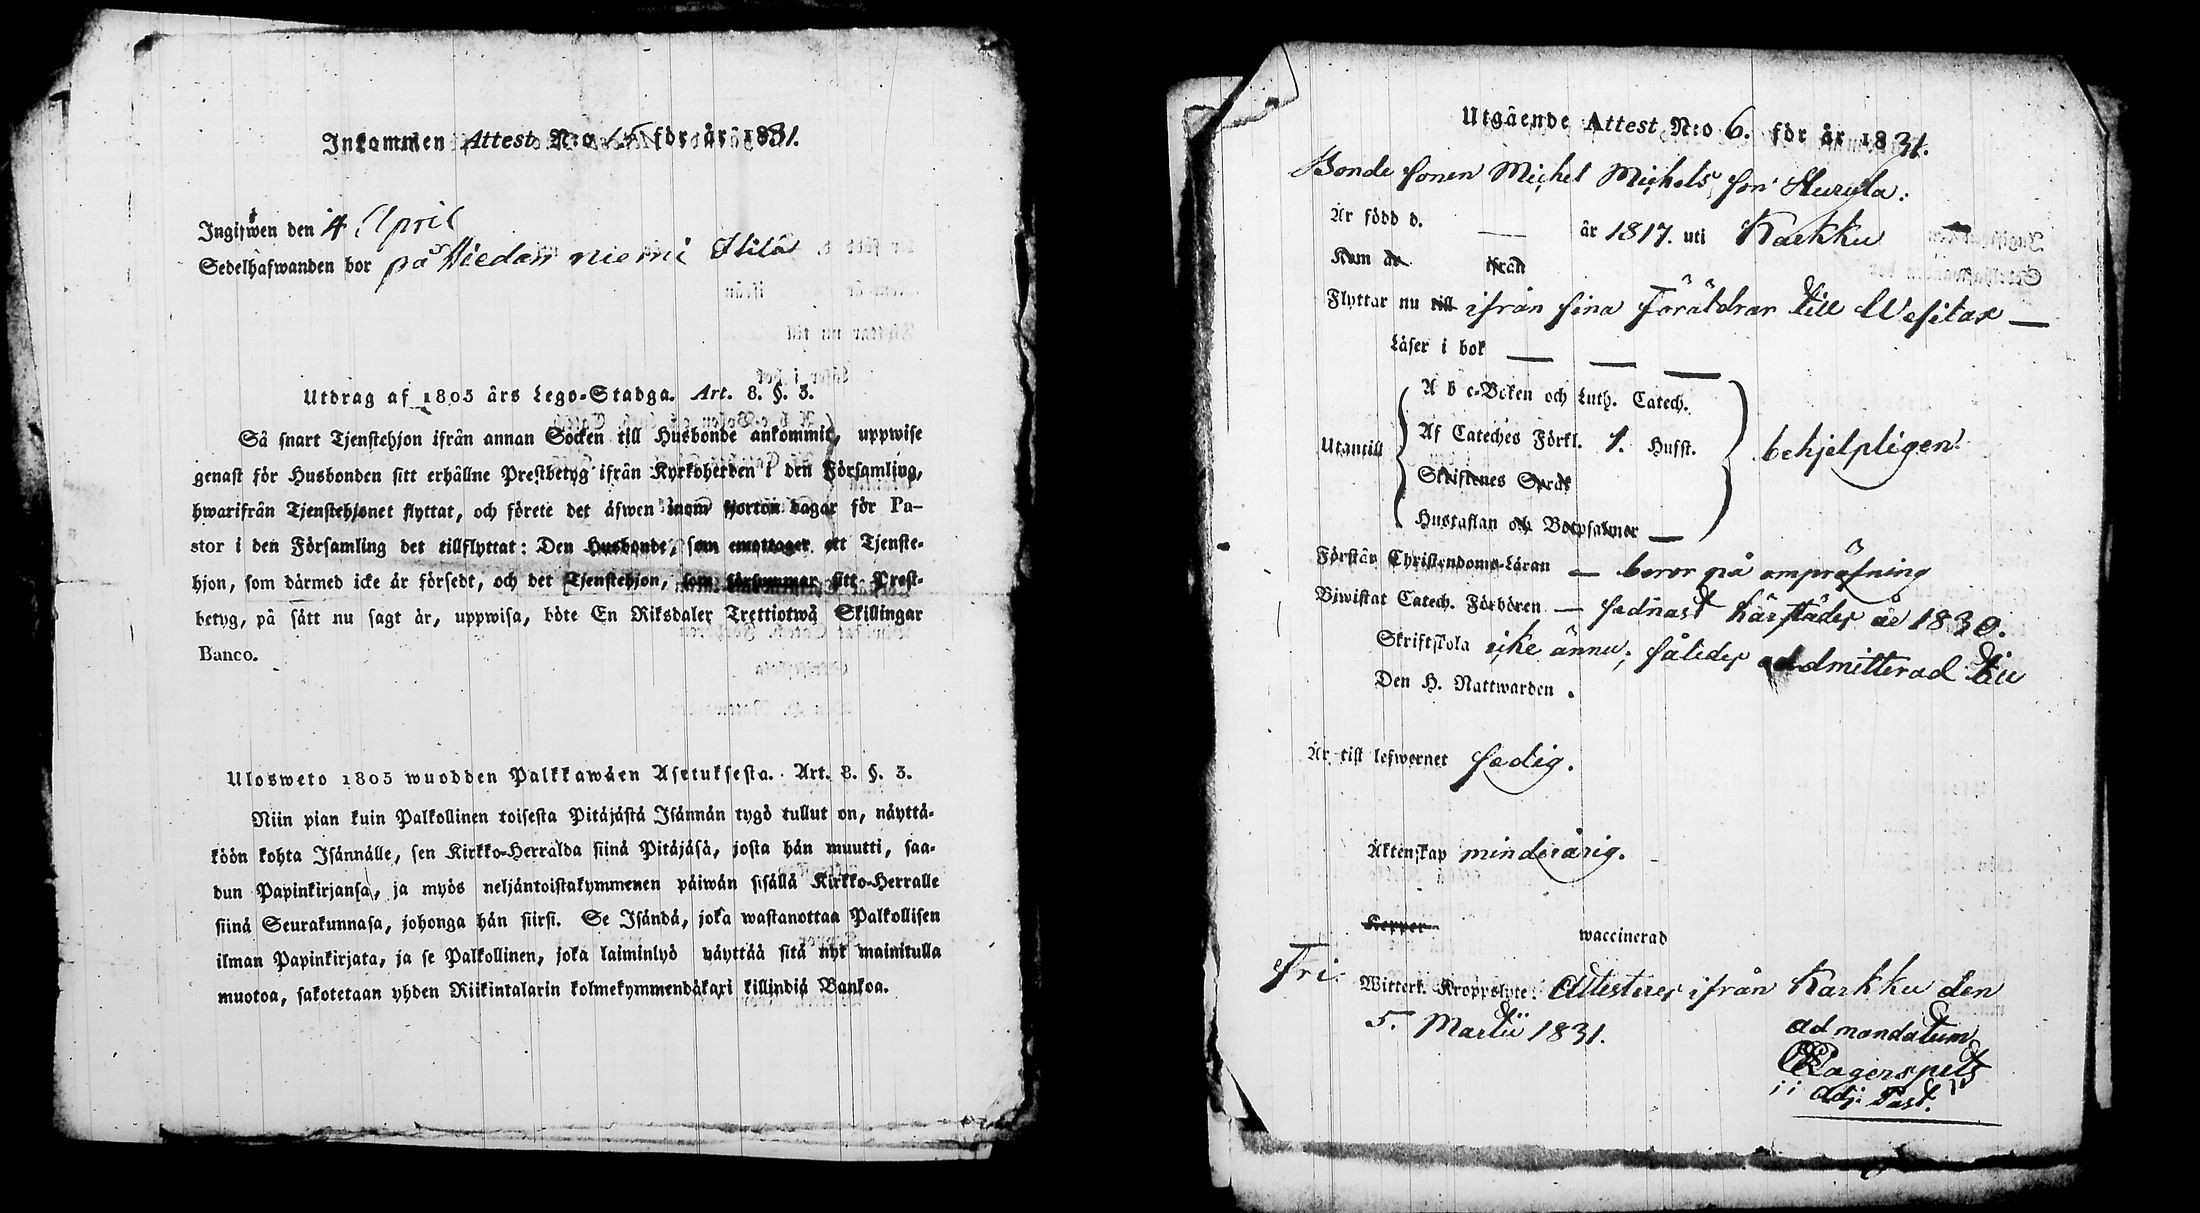 Inkommen Attest N:o 15 för år 1831.
Ingifwen den 4 April
Sedelhafwanden bor på
Utdrag af 1805 års Lego-Stadga. Art. 8. §. 3.
Så snart Tjenstehjon ifrån annan Socken till Husbonde ankommit, uppwise
genast för Husbonden sitt erhållne Prestbetyg ifrån Kyrkoherden i den Församling,
hwarifrån Tjenstehjonet flyttat, och förete det äfwen inom fjorton dagar för Pa-
stor i den Församling det tillflyttat: Den Husbonde, som emottager ett Tjenste-
hjon, som därmed icke är försedt, och det Tjenstehjon, som försummar sitt Prest-
betyg, på sätt nu sagt är, uppwisa, böte En Riksdaler Trettiotwå Skillingar
Banco.
Ulosweto 1805 wuodden Palkkawäen Asetuksesta. Art. 8. §. 3.
Niin pian kuin Palkollinen toisesta Pitäjästä Isännän tygö tullut on, näyttä-
köön kohta Isännälle, sen Kirkko-Herralda siinä Pitäjäsä, josta hän muutti, saa-
dun Papinkirjansa, ja myös neljäntoistakymmenen päiwän sisällä Kirkko-Herralle
siinä Seurakunnasa, johonga hän siirsi. Se Isändä, joka wastanottaa Palkollisen
ilman Papinkirjata, ja se Palkollinen, joka laiminlyö näyttää sitä nyt mainitulla
muotoa, sakotetaan yhden Riikintalarin kolmekymmendäkaxi killindiä Bankoa.
Utgående Attest N:o 6. för år 1831.
Bonde sonen Michel Michels son
Är född d. — år 1817. uti Karkku
Kom år ifrån
Flyttar nu till ifrån sina Föräldrar till Wesilax —
Läser i bok — — —
Utantill
A b c-Boken och Luth. Catech.
Af Cateches Förkl. 1. Hufst.
Skriftenes Språk
Hustaflan och Botpsalmer —
behjelpligen.
Förstår Christendoms-Läran — beror på ompröfning
Biwistat Catech. Förhören — sednast härstädes år 1830.
Skriftskola icke ännu; således admitterad till
Den H. Nattwarden.
Är till lefwernet sedig.
Äktenskap minderårig.
Koppor waccinerad
Fri. Witterl. Kroppslyte. Attesteres ifrån Karkku den
5. Martii 1831.
ad mandatum
Lagerspetz
Adj: Past.